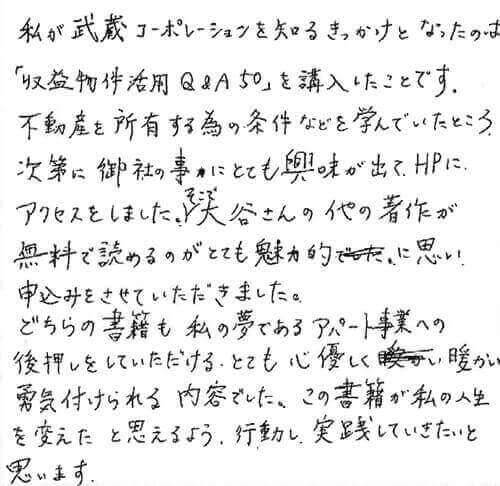 私が武蔵コーポレーションを知るきっかけとなったのは
「収益物件活用Q&A50」を購入したことです。
不動産を所有する為の条件などを学んでいたところ
次第に御社の事にとても興味が出て、HPに
アクセスをしました。そこで大谷さんの他の著作が
無料で読めるのがとても魅力的に思い
申込みをさせていただきました。
どちらの書籍も私の夢であるアパート事業への
後押しをしていただける、とても心優しく暖かい
勇気付けられる内容でした。この書籍が私の人生
を変えたと思えるよう、行動し、実践していきたいと
思います。